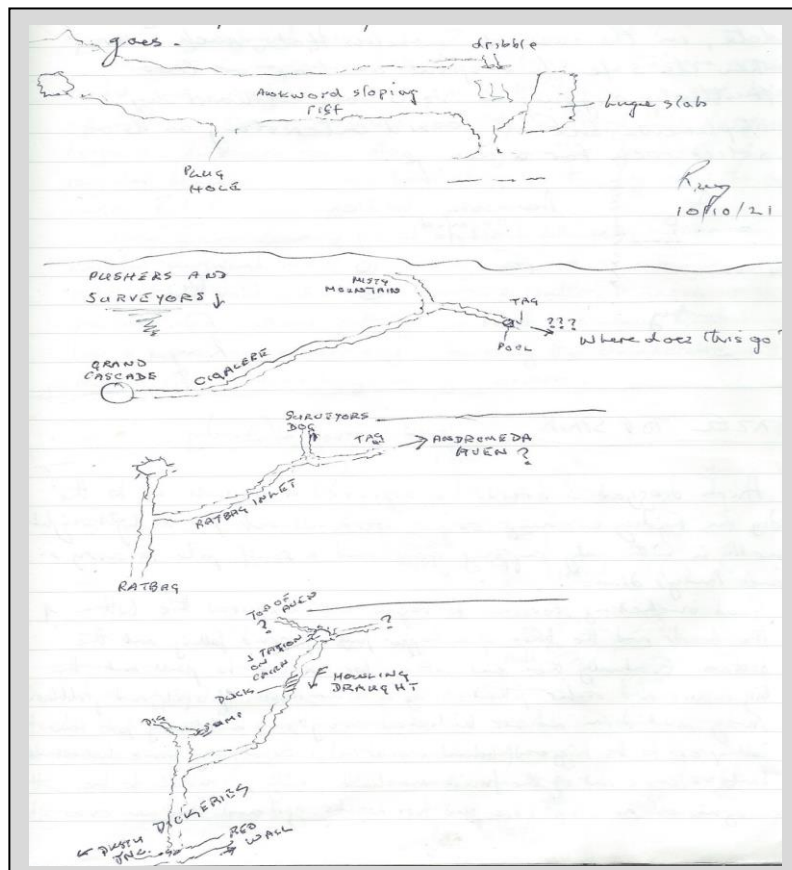 goes.
dribble
Awkword sloping
rift
huge slab
PLUG
HOLE
10/10/21
PUSHERS AND
SURVEYORS ↓
MISTY
MOUNTAIN
TAG
→ ???
Where does this go
POOL
GRAND
CASCADE
CIGALERE
SURVEYORS
DOG
TAG
→ ANDROMEDA
AVEN ?
RATBAG INLET
RATBAG
TOP OF
AVEN
?
?
STATION
ON
CAIRN
DUCK
HOWLING
DRAUGHT
DIG
SUMP
DICKERIES
JNC.
RED
WALL